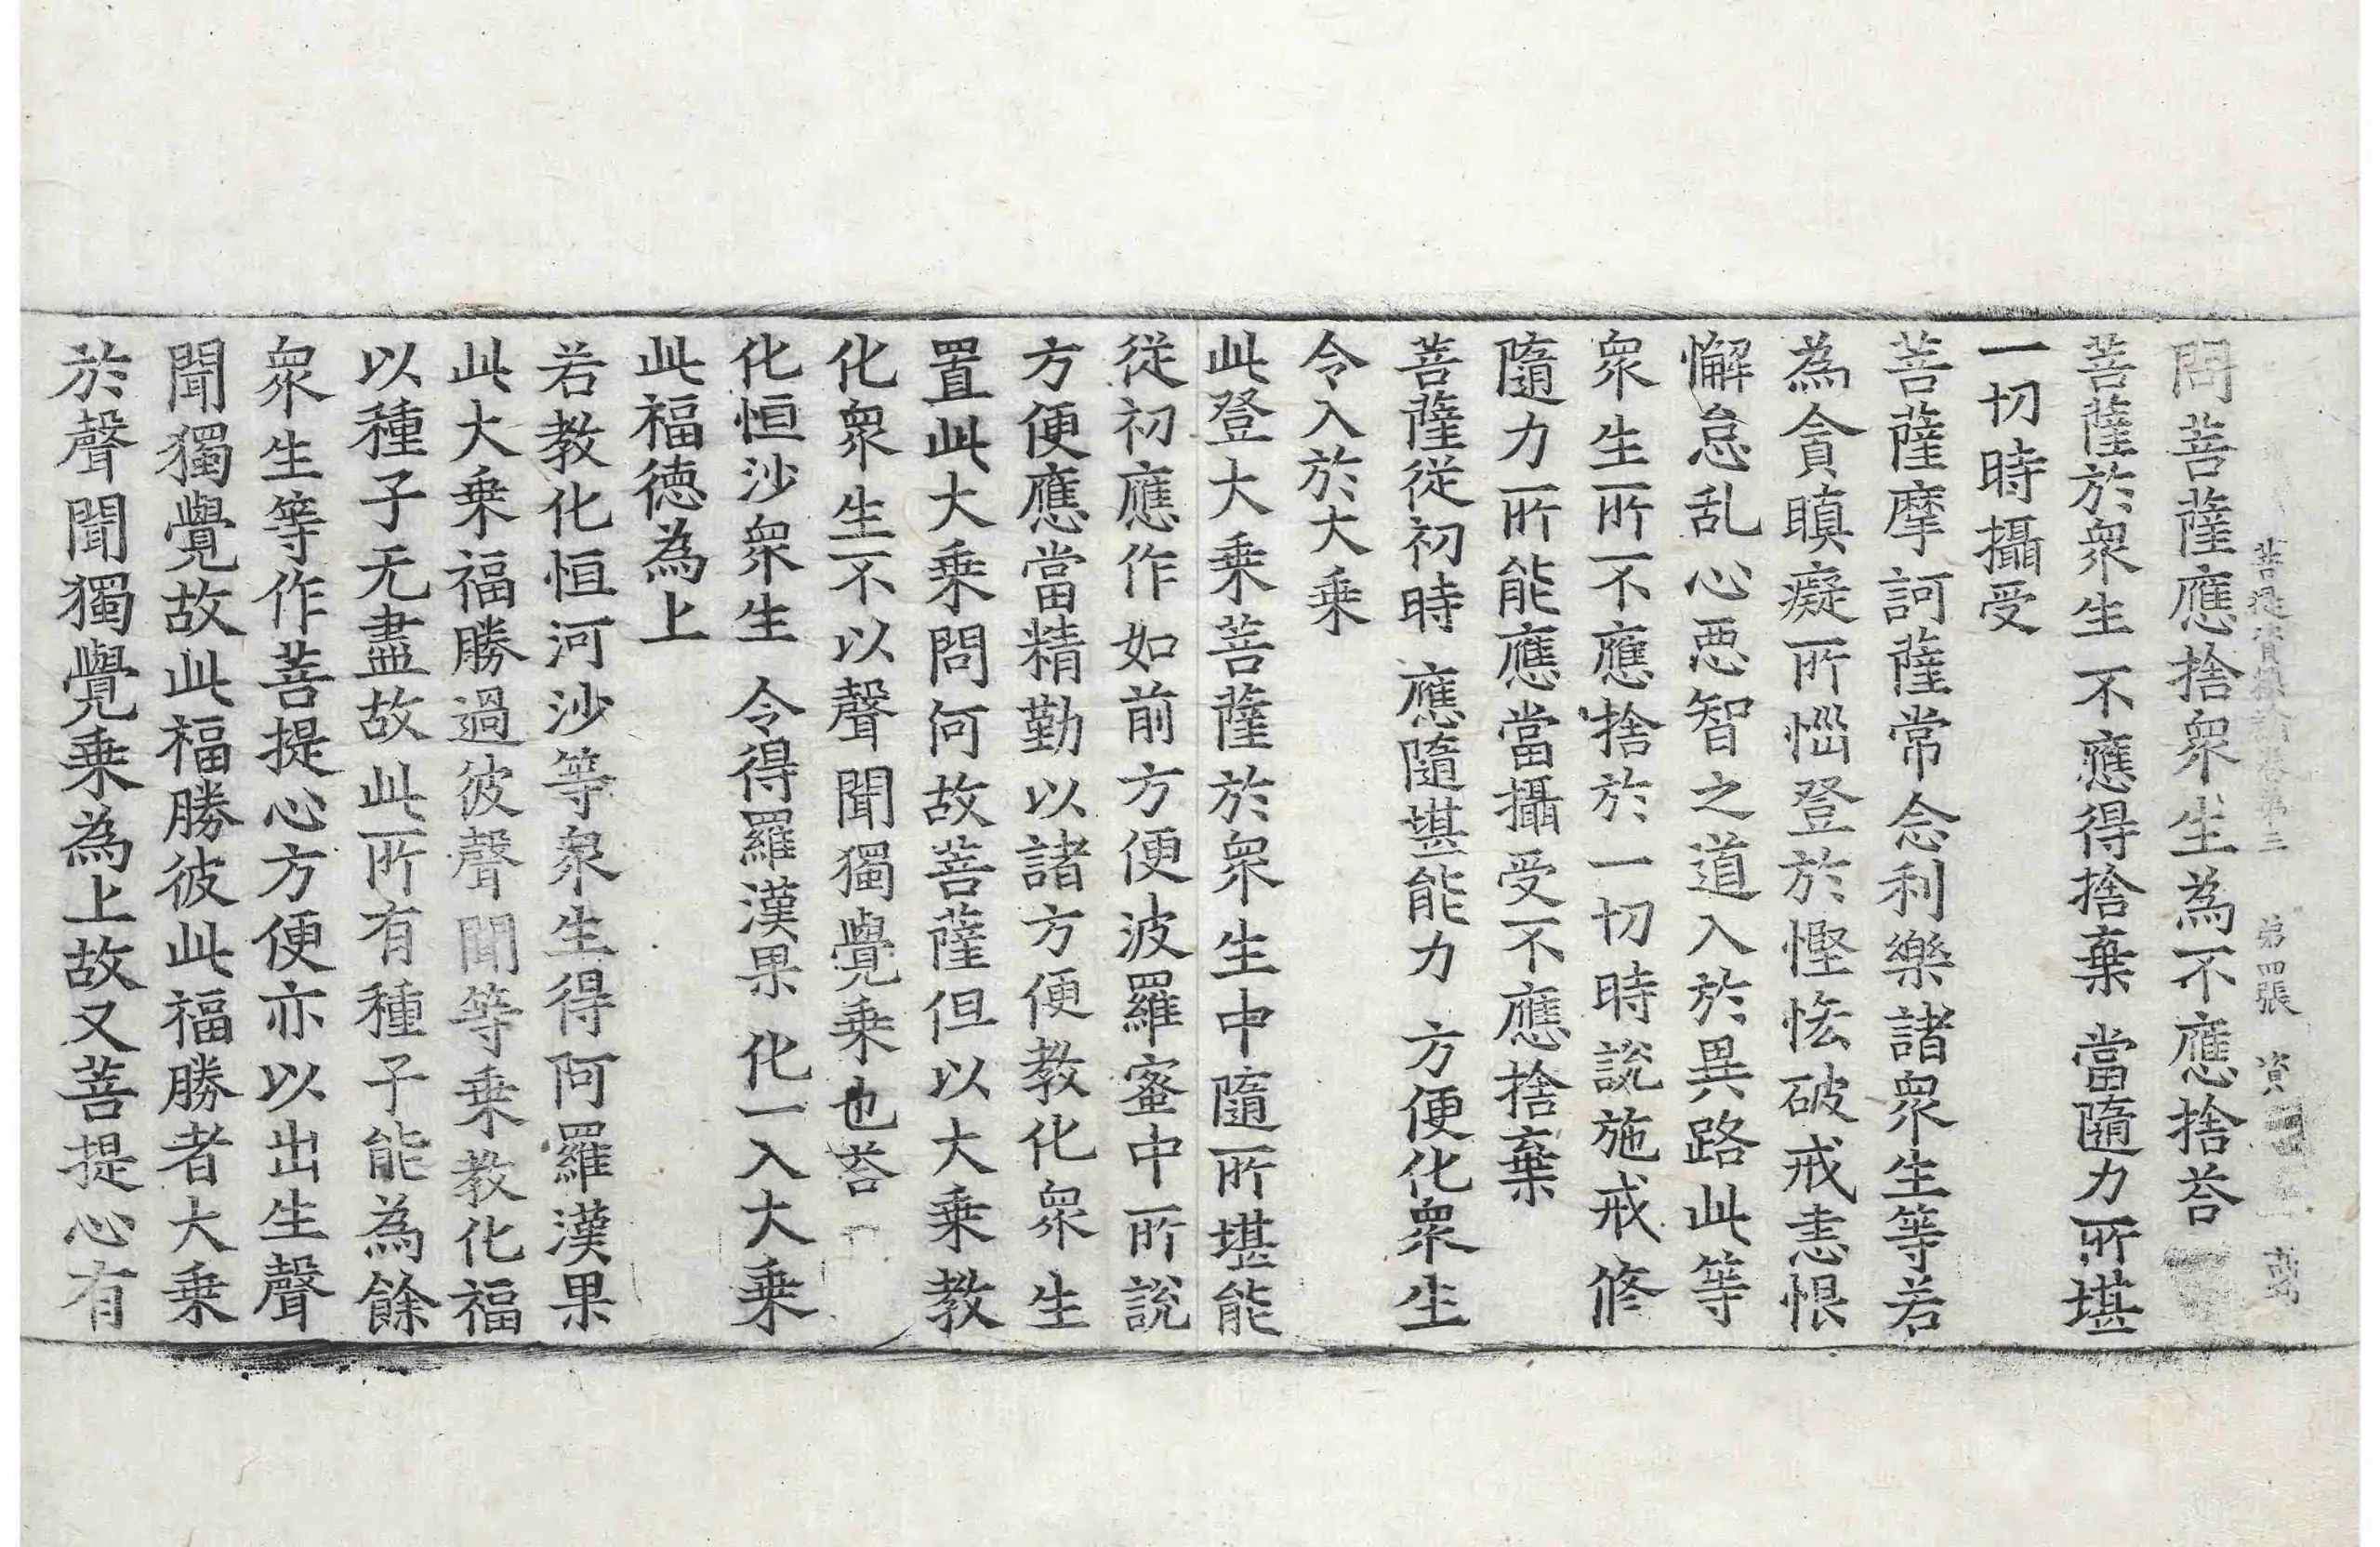 菩提資粮論卷第三　弟四張　資
問菩薩應捨衆生為不應捨荅
菩薩於衆生　不應得捨棄　當隨力所堪
一切時攝受
菩薩摩訶薩常念利樂諸衆生等若
為貪瞋癡所惱登於慳悋破戒恚恨
懈怠乱心惡智之道入於異路此等
衆生所不應捨於一切時說施戒修
隨力所能應當攝受不應捨棄
菩薩從初時　應隨堪能力　方便化衆生
令入於大乗
此登大乗菩薩於衆生中隨所堪能
從初應作如前方便波羅蜜中所說
方便應當精勤以諸方便教化衆生
置此大乗問何故菩薩但以大乗教
化衆生不以聲聞獨覺乗也荅
化恒沙衆生　令得羅漢果　化一入大乗
此福德為上
若教化恒河沙等衆生得阿羅漢果
此大乗福勝過彼聲聞等乗教化福
以種子无盡故此所有種子能為餘
衆生等作菩提心方便亦以出生聲
聞獨覺故此福勝彼此福勝者大乗
於聲聞獨覺乗為上故又菩提心有